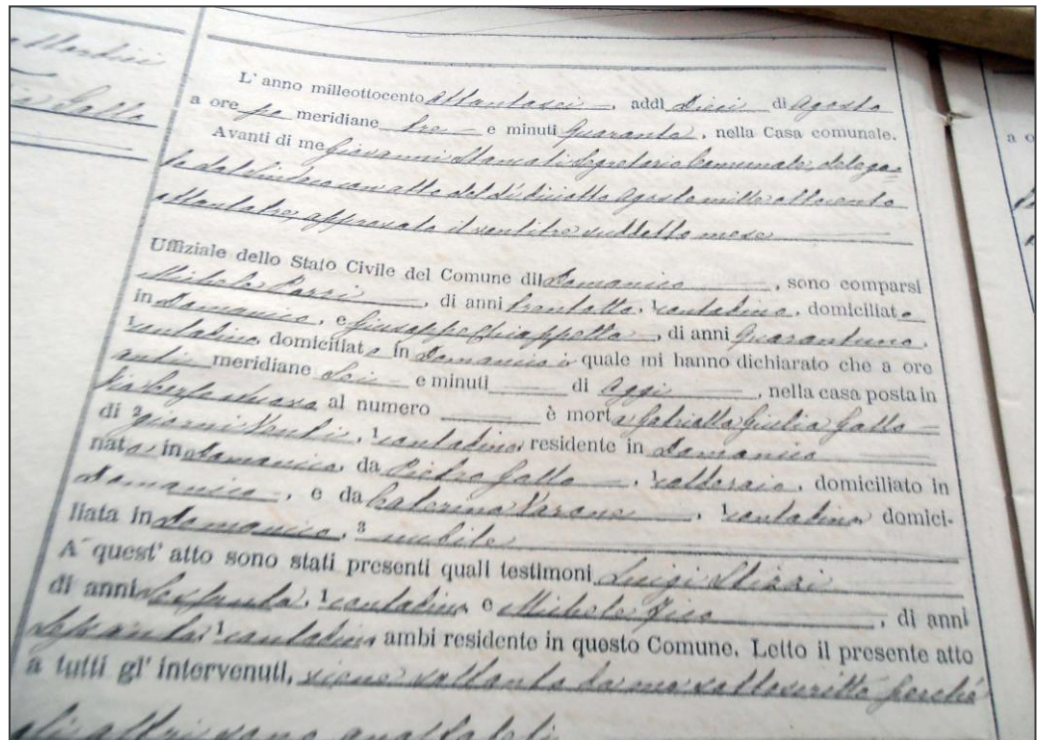 Gallo
L' anno milleottocento ottantasei, addì dieci di Agosto
a ore po meridiane tre e minuti quaranta, nella Casa comunale.
Avanti di me Giovanni Segretario Comunale, delega=
to dal Sindaco con atto del dì diciotto Agosto mille ottocento
ottantatre, approvato il ventitre suddetto mese
Uffiziale dello Stato Civile del Comune di Domanico, sono comparsi
Michele, di anni trentotto, ¹contadino, domiciliato
in Domanico, e Giuseppe Chiappetta, di anni quarantuno,
¹contadino domiciliato in Domanico i quale mi hanno dichiarato che a ore
anti meridiane sei e minuti di oggi, nella casa posta in
al numero è morta Gabriella Giulia Gallo
di ²giorni venti, ¹contadina residente in Domanico
nata in Domanico, da Pietro Gallo, ¹calderaio, domiciliato in
Domanico, e da Caterina Varone, ¹contadina domici-
liata in Domanico, ³nubile
A quest' atto sono stati presenti quali testimoni Luigi
di anni sessanta, ¹contadino e Michele Fico, di anni
¹contadino ambi residente in questo Comune. Letto il presente atto
a tutti gl' intervenuti, viene soltanto da me sottoscritto perchè
gli altri sono analfabeti